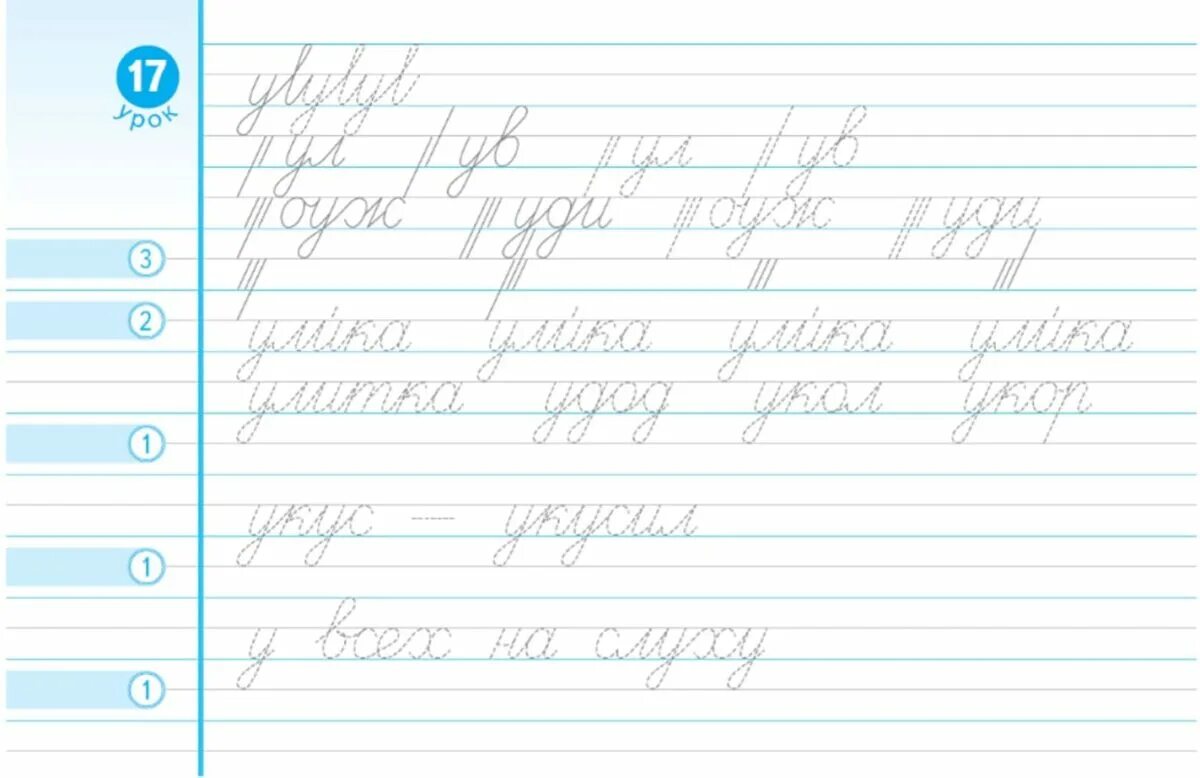 17
урок
ул ув ул ув
оуж уди оуж уди
3
2
ули́ка ули́ка ули́ка ули́ка
улитка удод укол укор
1
укус — укусил
1
у всех на слуху
1